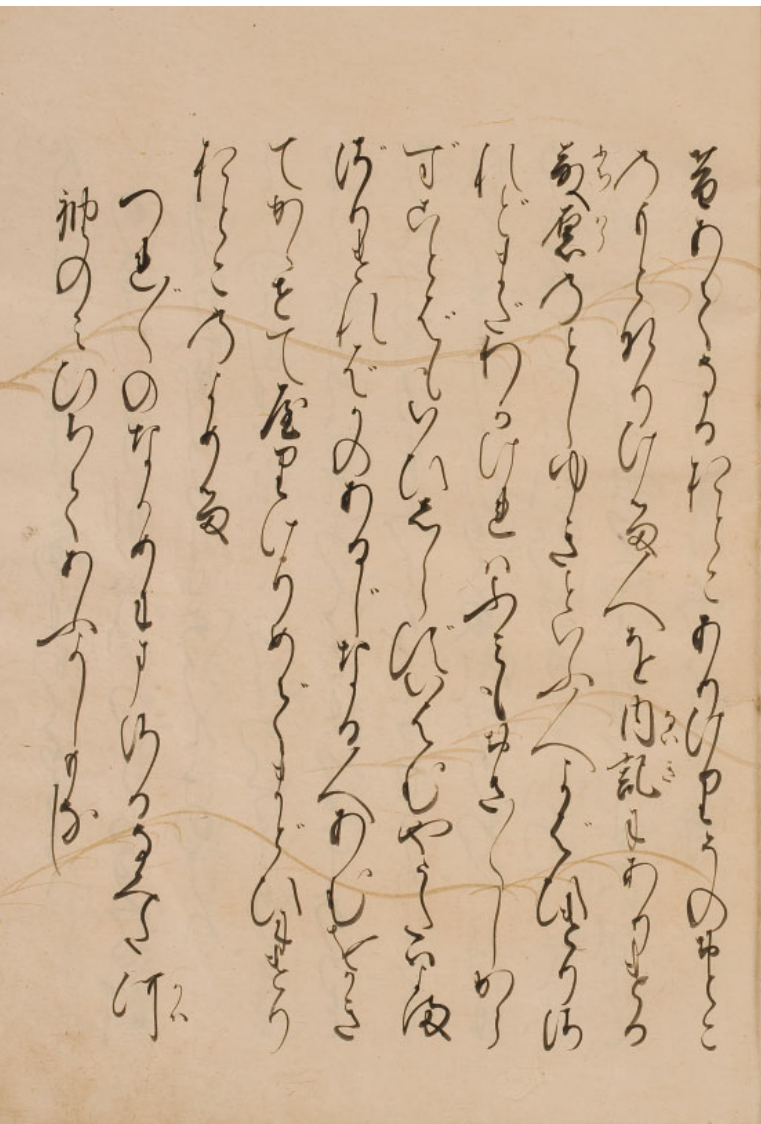 昔あてなるおとこありけりそのおとこ
のもとなりける人を内記にありける
藤原のとしゆきといふ人よばひけりさ
れどまだわかければふみもおさ〳〵しから
ずことばもいひしらずいはむやうたはよま
ざりければかのあるじなる人あむをかき
てかゝせてやりけりめでまどひにけり
おとこのよめる
つれ〴〵のながめにまさるなみだ河
袖のみひちてあふよしもなし